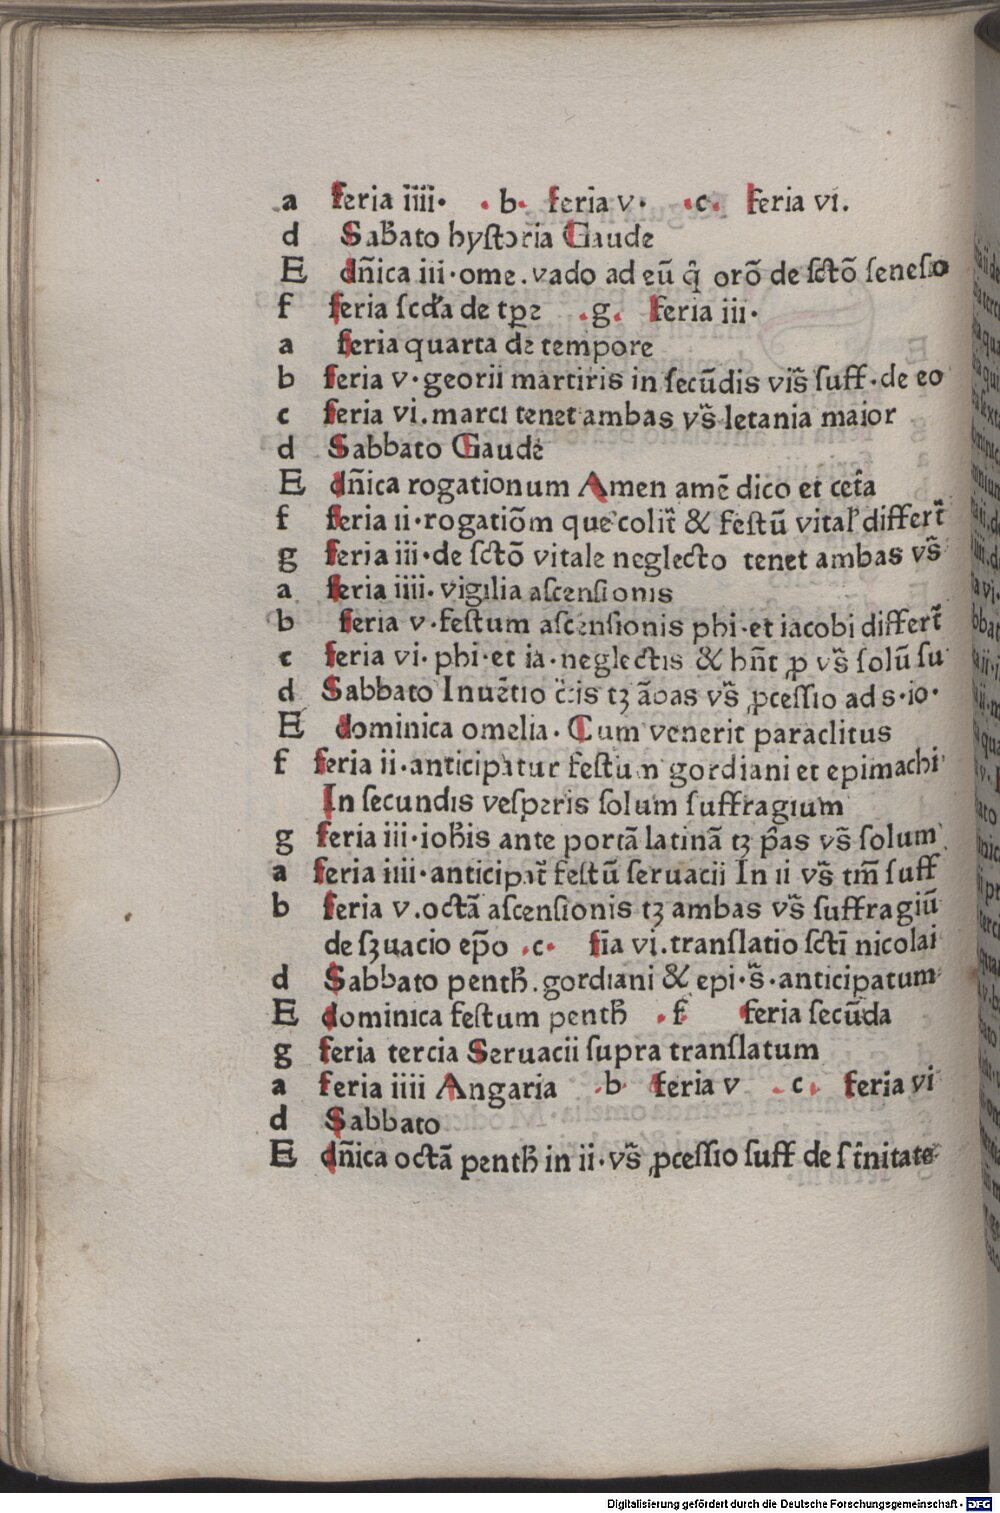 a feria iiii· · b· feria v· ·c· feria vi.
d Sab̄ato hyſtoria Gaude
E dn̄ica iii·ome.vado ad eū q̄ orō de ſctō ſeneſio
f feria ſcd̄a de tp̄e ·g· feria iii·
a feria quarta de tempore
b feria v·georii martiris in ſecūdis vis̄ ſuff·de eo
c feria vi.marci tenet ambas vs̄ letania maior
d Sabbato Gaude
E dn̄ica rogationum Amen amē dico et cet̄a
f feria ii·rogatiōm que colit̄ & feſtū vital' differt̄
g feria iii·de ſctō vitale neglecto tenet ambas vs̄
a feria iiii. vigilia aſcenſionis
b feria v·feſtum aſcenſionis phi·et iacobi differt̄
c feria vi. phi·et ia·neglectis & hn̄t ꝓ vs̄ ſolū ſu
d Sabbato Inuētio c̄cis tʒ ābas vs̄ ꝓceſſio ad s·io·
E dominica omelia. Cum venerit paraclitus
f feria ii·anticipatur feſtum gordiani et epimachi
In ſecundis veſperis ſolum ſuffragium
g feria iii·ioh̄is ante portā latinā tʒ p̄as vs̄ ſolum
a feria iiii·anticipat̄ feſtū ſeruacii In ii vs̄ tm̄ ſuff
b feria v.octā aſcenſionis tʒ ambas vs̄ ſuffragiū
de ſʒuacio ep̄o ·c· fīa vi.tranſlatio ſctī nicolai
d Sabbato penth̄.gordiani & epi·s̄·anticipatum
E dominica feſtum penth̄ ·f feria ſecūda
g feria tercia Seruacii ſupra tranſlatum
a feria iiii Angaria ·b· feria v ·c· feria vi
d Sabbato
E dn̄ica octā penth̄ in ii·vs̄ ꝓceſſio ſuff de ſ t̄initate
Digitalisierung gefördert durch die Deutsche Forschungsgemeinschaft - DFG